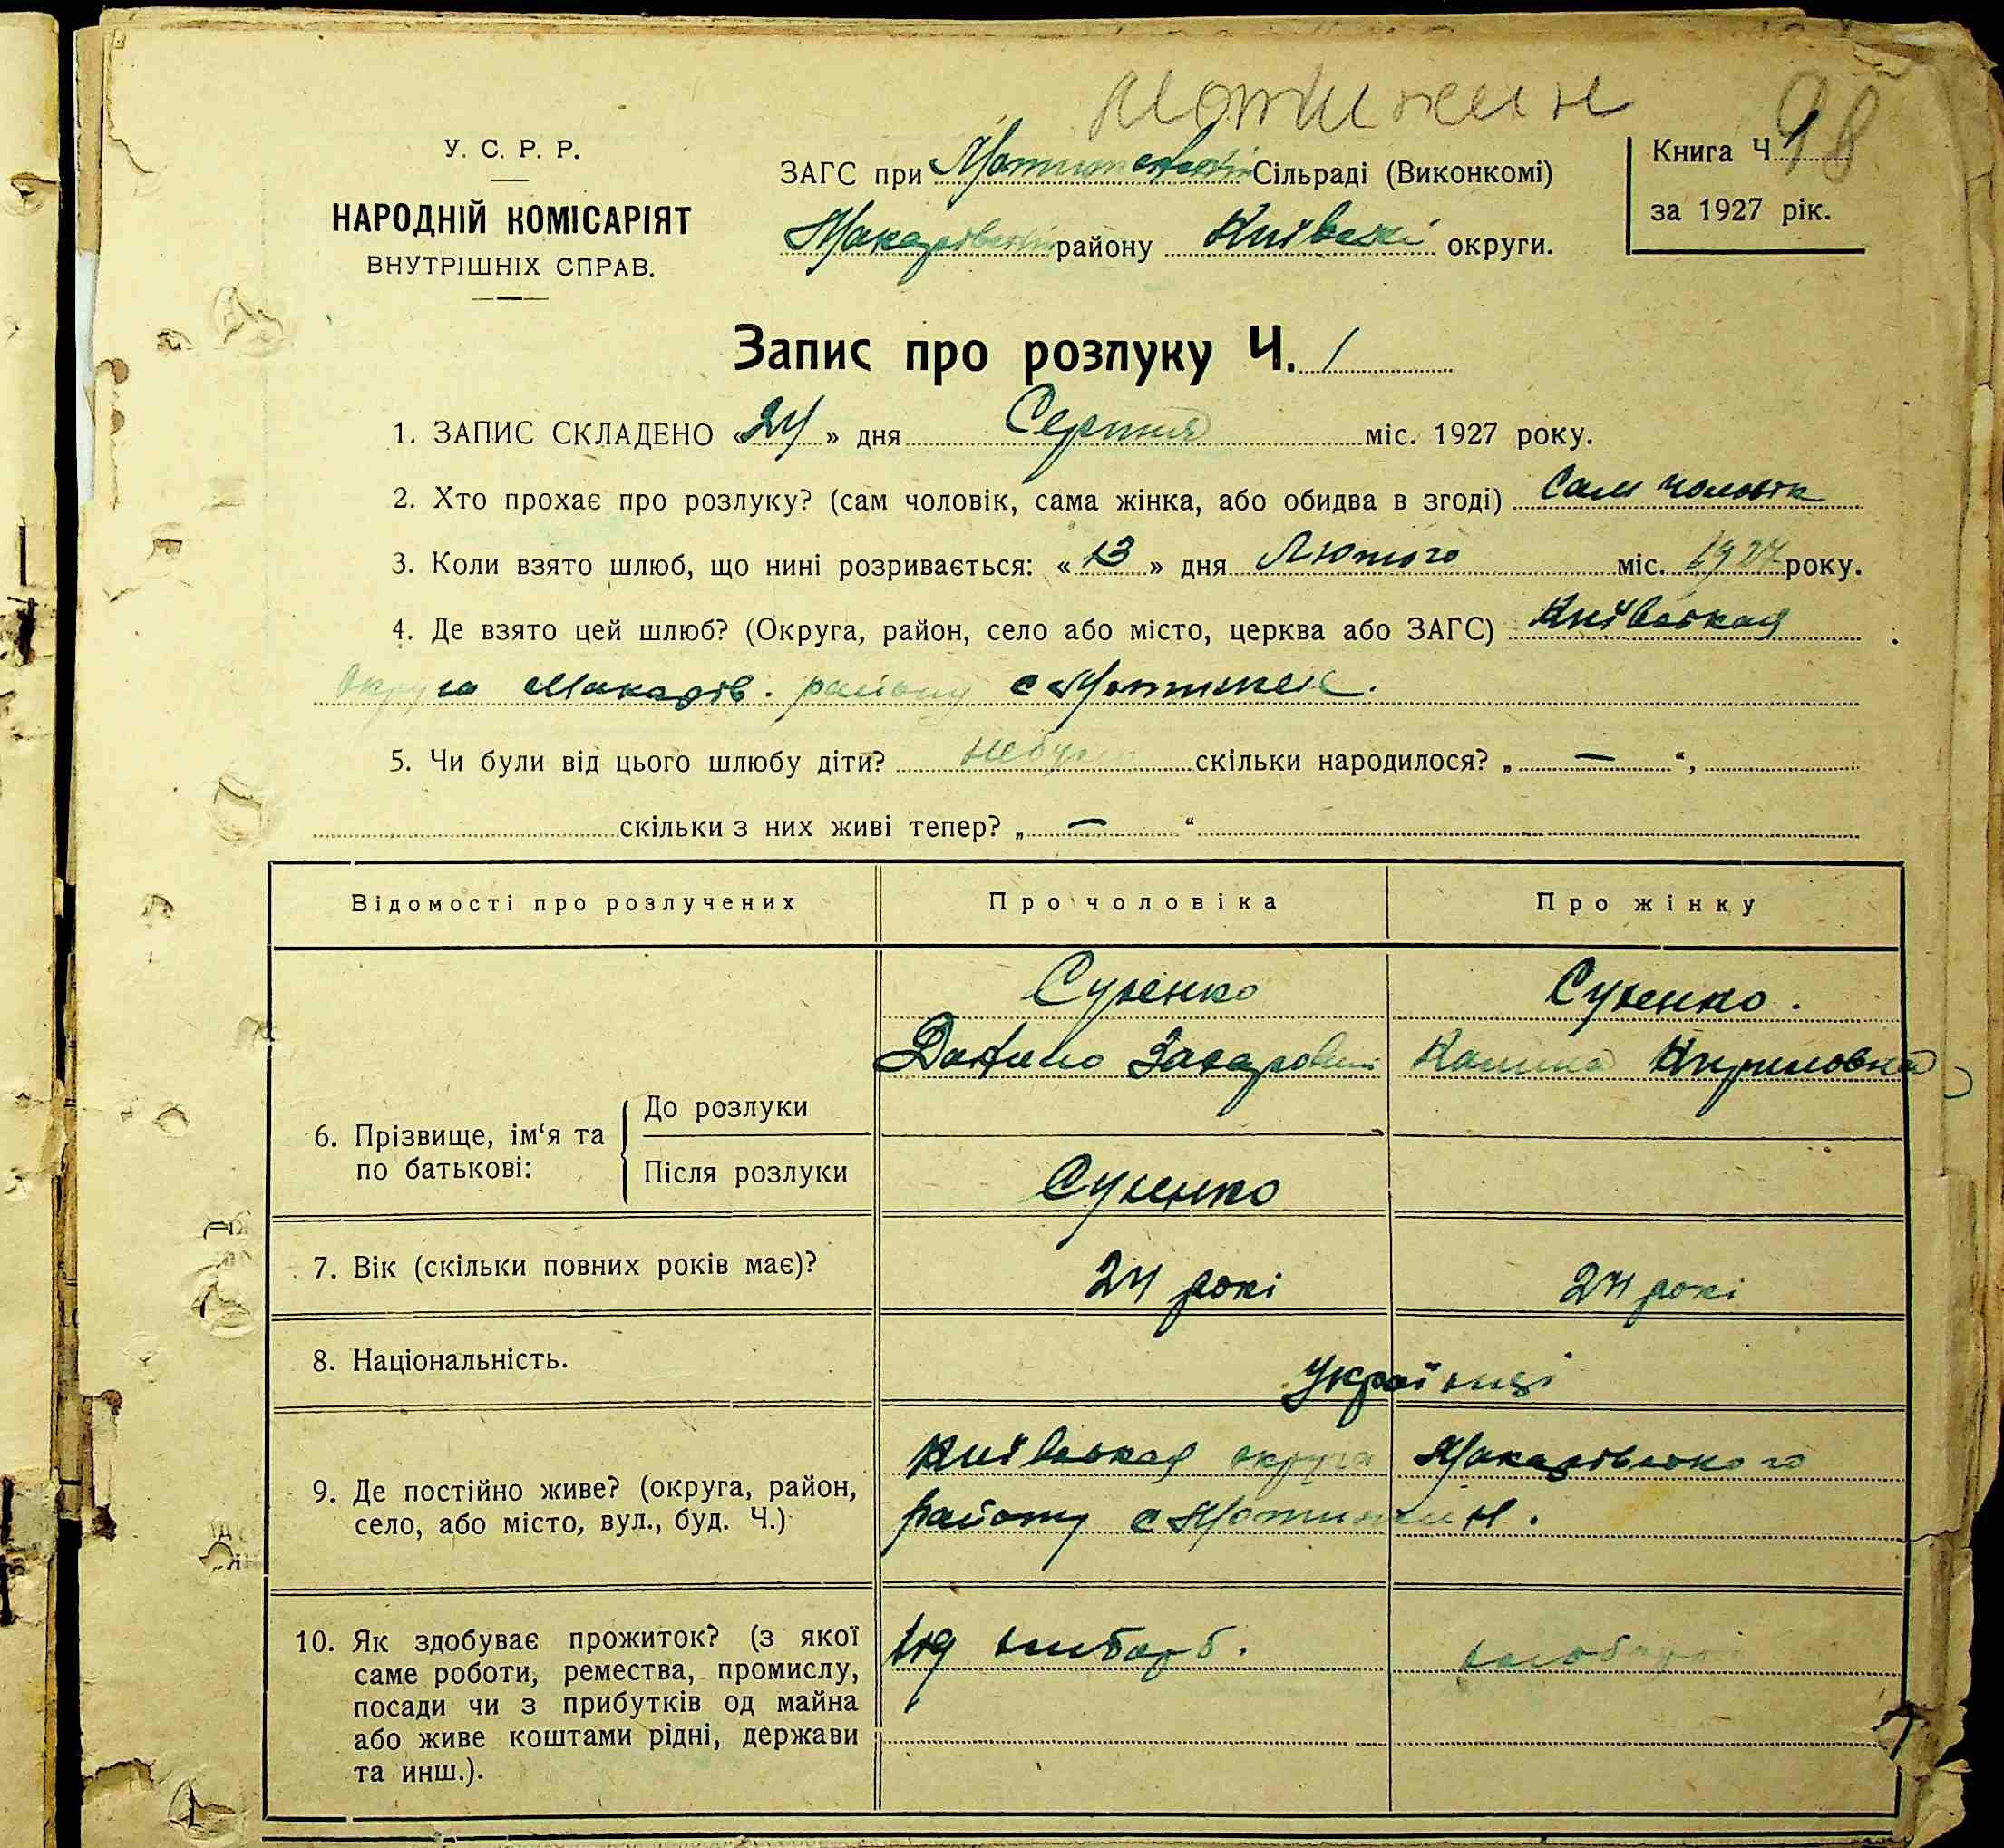 Мотижин
98
У. С. Р. Р.
НАРОДНІЙ КОМІСАРІЯТ
ВНУТРІШНІХ СПРАВ.
ЗАГС при Сільраді (Виконкомі)
Макарівськ району Київської округи.
Книга Ч. 1
за 1927 рік.
Запис про розлуку Ч. 1
1. ЗАПИС СКЛАДЕНО «24» дня Серпня міс. 1927 року.
2. Хто прохає про розлуку? (сам чоловік, сама жінка, або обидва в згоді) Сам чоловік
3. Коли взято шлюб, що нині розривається: «13» дня Лютого міс. 1927 року.
4. Де взято цей шлюб? (Округа, район, село або місто, церква або ЗАГС) Київськая
округа Макарів. району с Мотижен.
5. Чи були від цього шлюбу діти? небули скільки народилося? „ — “,
скільки з них живі тепер? „ — “
Відомості про розлучених Про чоловіка Про жінку
Суненко Суненко.
Данило Захарович Кириловна
6. Прізвище, ім‘я та по батькові:
До розлуки
Після розлуки Суненко
7. Вік (скільки повних років має)? 24 рокі 24 рокі
8. Національність. Українці
9. Де постійно живе? (округа, район,
село, або місто, вул., буд. Ч.)
Київськая округа Макарівського
району с Мотижин.
10. Як здобуває прожиток? (з якої
саме роботи, ремества, промислу,
посади чи з прибутків од майна
або живе коштами рідні, держави
та инш.).